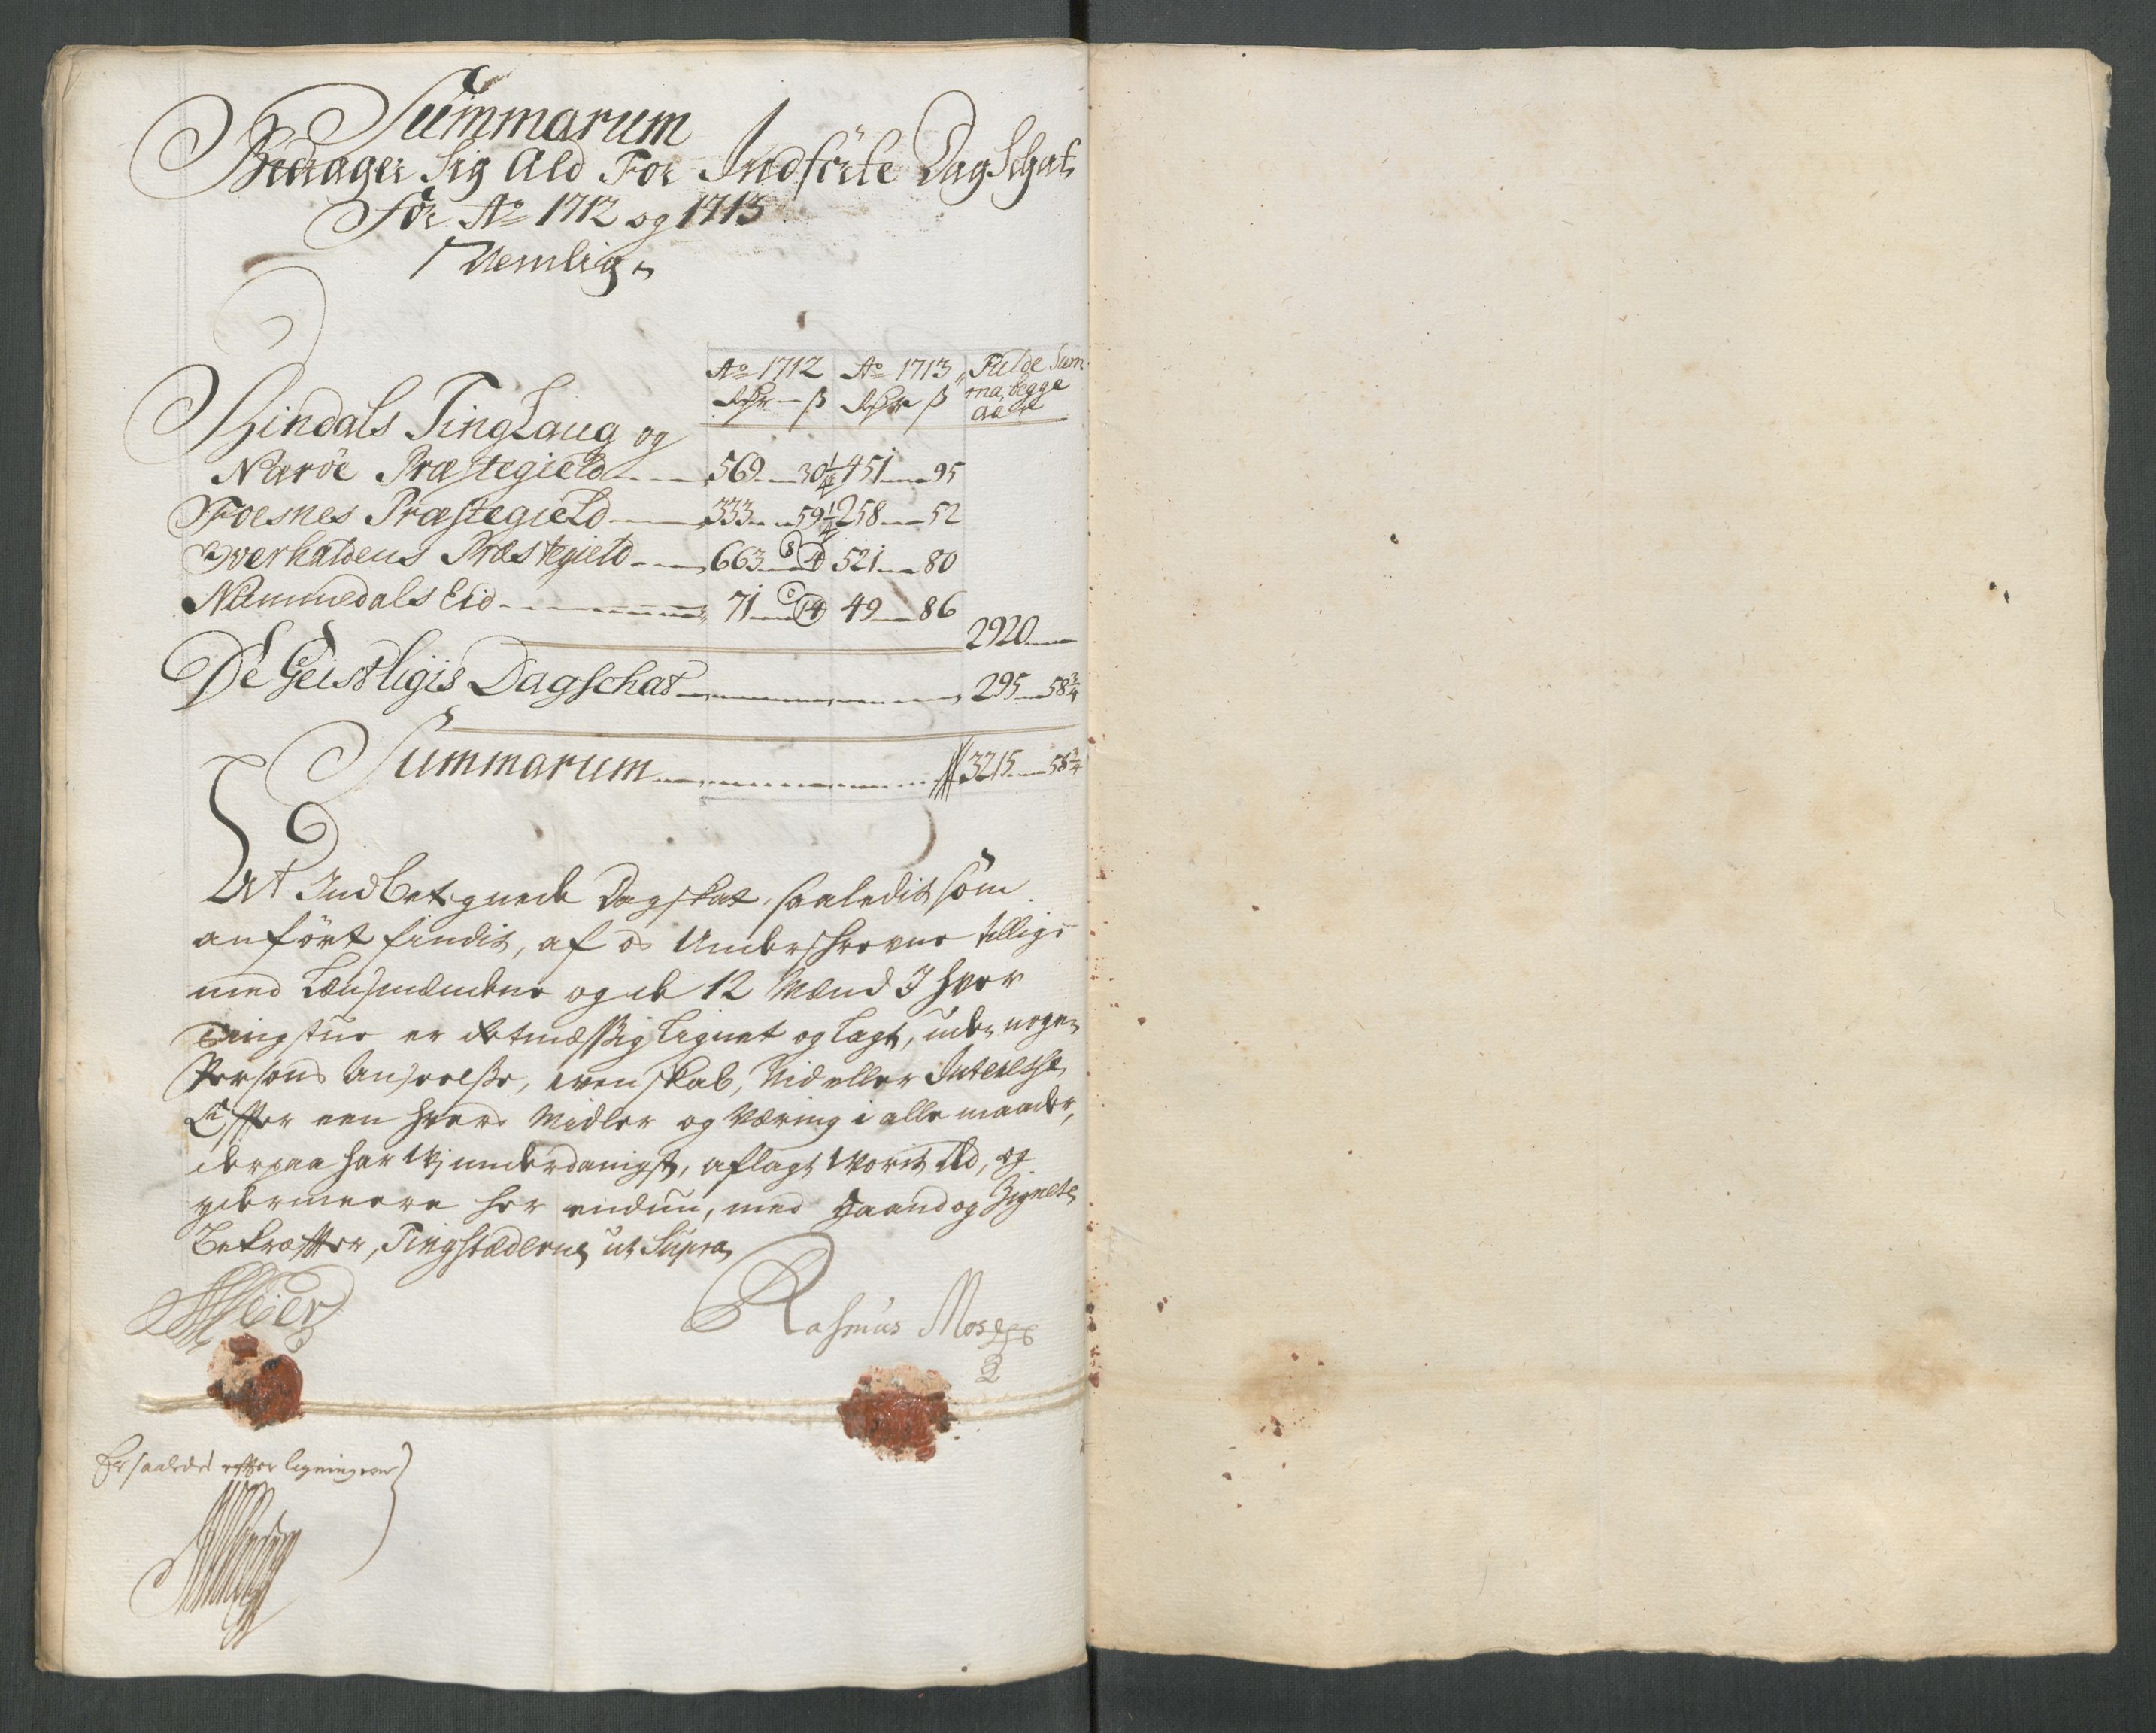 Summarum
Bedrager Sig Ald For Indförte DagSchat
For Ao 1712 og 1713
Nemlig
Ao 1712 Ao 1713 Fulde Sum-
Rdr — ß Rdr ß ma, begge
Aar
Bindals TingLaug og
Næröe Præstegield 569 30 1/4 451 95
Foesnes Præstegield 333 59 1/2 258 52
Overhaldens Præstegield 663 4 521 80
Nummedals Eid 71 14 49 86
2920
De Geistligis Dagschat 295 58 3/4
Summarum 3215 58 3/4
At Indbetegnede Dagskat, saaledis som
anfört findis, af os Underschrevne tillige
med Lænsmændene og de 12 Mænd I hver
Tingstue er Retmæssig Lignet og Lagt, uden nogen
Persons Anseelse, Wenskab, Nid eller Interesse,
Effter een hvers Midler og Næring i alle maader,
derpaa har Wj underdanigst, aflagt Worit Æd, og
ydermeere her under, med Haand og Zignete
Bekræffter, Tingstæderne ut Supra
Rasmus
Er saaledes effter ligningerne